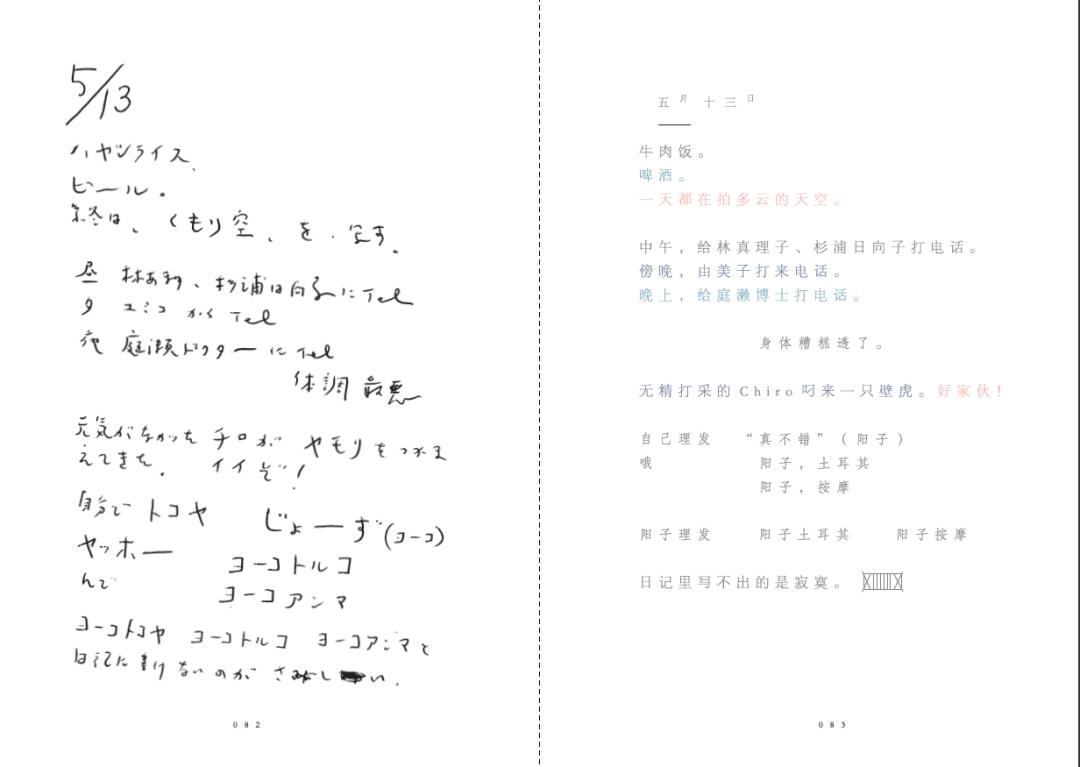 5/13
ハヤシライス.
ビール。
終は、くもり空、を.写す.
昼 林あまり、杉浦日向子にTel
夕 ユミコからTel
夜 庭瀬ドクターにTel
体調最悪
元気がなかった チロが ヤモリをつかま
えてきた. イイぞ!
自分で トコヤ じょーず(ヨーコ)
ヤッホー ヨーコトルコ
んで ヨーコアンマ
ヨーコトコヤ ヨーコトルコ ヨーコアンマと
日記に書けないのが さみしい.
082
五月十三日
牛肉饭。
啤酒。
一天都在拍多云的天空。
中午，给林真理子、杉浦日向子打电话。
傍晚，由美子打来电话。
晚上，给庭濑博士打电话。
身体糟糕透了。
无精打采的Chiro叼来一只壁虎。好家伙！
自己理发 “真不错”（阳子）
哦 阳子，土耳其
阳子，按摩
阳子理发 阳子土耳其 阳子按摩
日记里写不出的是寂寞。
083